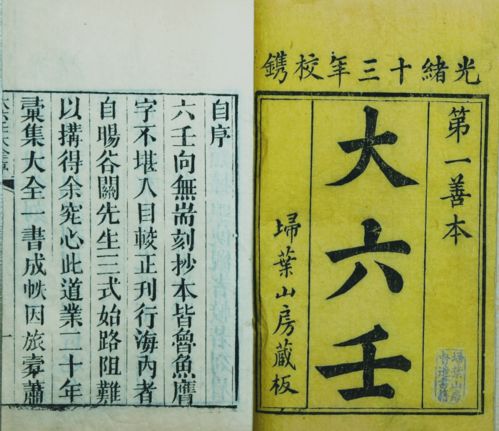 光緒十三年校鐫
第一善本
大六壬
埽葉山房藏板
自序
六壬向無耑刻抄本皆魯魚贋
字不堪入目較正刊行海內者
自暘谷關先生三式始路阻難
以搆得余究心此道業二十年
彙集大全一書成帙因旅橐蕭
一